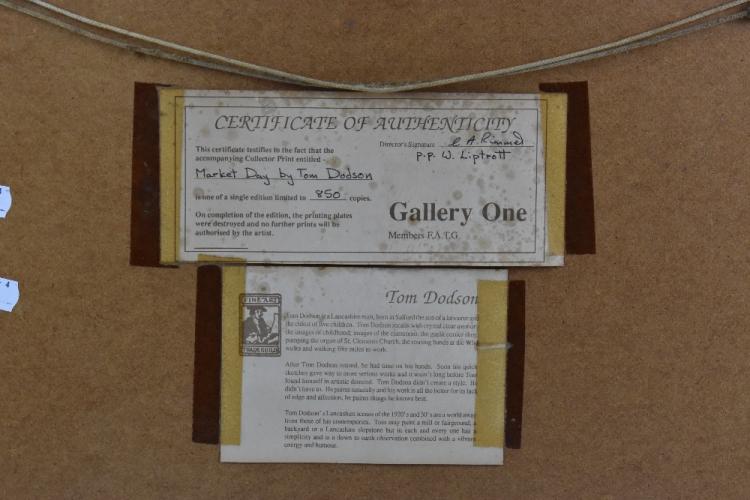 CERTIFICATE OF AUTHENTICITY
This certificate testifies to the fact that the
accompanying Collector Print entitled -
Market Day by Tom Dodson
is one of a single edition limited to 850 copies.
On completion of the edition, the printing plates
were destroyed and no further prints will be
authorised by the artist.
Director's Signature
P.P. W. Liptrott
Gallery One
Members F.A.T.G.
FINE ART
TRADE GUILD
Tom Dodson
Tom Dodson is a Lancashire man, born in Salford the son of a labourer and
the eldest of five children. Tom Dodson recalls with crystal clear
the images of childhood; images of the classroom, the
pumping the organ of St. Clements Church, the roaring bands at the
walks and walking five miles to work.
After Tom Dodson retired, he had time on his hands. Soon his quick
sketches gave way to more serious works and it wasn't long before Tom
found himself in artistic demand. Tom Dodson didn't create a style. He
didn't have to. He paints naturally and his work is all the better for its lack
of edge and affection, he paints things he knows best.
Tom Dodson's Lancashire scenes of the 1920's and 30's are a world away
from those of his contemporaries. Tom may paint a mill or fairground, a
backyard or a Lancashire slopstone but in each and every one has a
simplicity and is a down to earth observation combined with a vibrant
energy and humour.
4